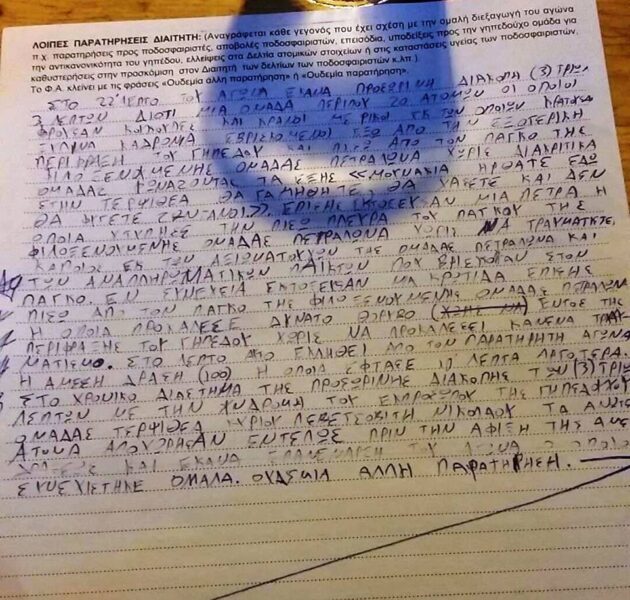 ΛΟΙΠΕΣ ΠΑΡΑΤΗΡΗΣΕΙΣ ΔΙΑΙΤΗΤΗ: (Αναγράφεται κάθε γεγονός που έχει σχέση με την ομαλή διεξαγωγή του αγώνα
π.χ. παρατηρήσεις προς ποδοσφαιριστές, αποβολές ποδοσφαιριστών, επεισόδια, υποδείξεις προς την γηπεδούχο ομάδα για
την αντικανονικότητα του γηπέδου, ελλείψεις στα Δελτία ατομικών στοιχείων ή στις καταστάσεις υγείας των ποδοσφαιριστών,
καθυστερήσεις στην προσκόμιση στον Διαιτητή των δελτίων των ποδοσφαιριστών κ.λπ.).
Το Φ.Α. κλείνει με τις φράσεις «Ουδεμία άλλη παρατήρηση» ή «Ουδεμία παρατήρηση».
ΣΤΟ 22 ΛΕΠΤΟ ΤΟΥ ΑΓΩΝΑ ΕΚΑΝΑ ΠΡΟΣΩΡΙΝΗ ΔΙΑΚΟΠΗ (3) ΤΡΙΩΝ
ΛΕΠΤΩΝ ΔΙΟΤΙ ΜΙΑ ΟΜΑΔΑ ΠΕΡΙΠΟΥ 20 ΑΤΟΜΩΝ ΟΙ ΟΠΟΙΟΙ
ΦΟΡΟΥΣΑΝ ΚΟΥΚΟΥΛΕΣ ΚΑΙ ΚΡΑΝΟΙ ΜΕΡΙΚΟΙ ΕΚ ΤΩΝ ΟΠΟΙΩΝ
ΞΥΛΙΝΑ ΚΑΔΡΟΝΙΑ ΕΞΩ ΑΠΟ ΤΗΝ ΕΞΩΤΕΡΙΚΗ
ΠΕΡΙΦΡΑΞΗ ΤΟΥ ΓΗΠΕΔΟΥ ΚΑΙ ΠΙΣΩ ΑΠΟ ΤΟΝ ΠΑΓΚΟ ΤΗΣ
ΦΙΛΟΞΕΝΟΥΜΕΝΗΣ ΟΜΑΔΑΣ ΠΕΤΡΑΛΩΝΑ ΧΩΡΙΣ ΔΙΑΚΡΙΤΙΚΑ
ΟΜΑΔΑΣ ΦΩΝΑΖΟΝΤΑΣ ΤΑ ΕΞΗΣ «ΜΟΥΝΑΚΙΑ ΗΡΘΑΤΕ ΕΔΩ
ΣΤΗΝ ΤΕΡΨΙΘΕΑ ΘΑ ΓΑΜΗΘΗΤΕ, ΘΑ ΧΑΣΕΤΕ ΚΑΙ ΔΕΝ
ΘΑ ΒΓΕΤΕ ΖΩΝΤΑΝΟΙ». ΕΠΙΣΗΣ ΕΚΤΟΞΕΥΣΑΝ ΜΙΑ ΠΕΤΡΑ Η
ΟΠΟΙΑ ΧΤΥΠΗΣΕ ΤΗΝ ΠΙΣΩ ΠΛΕΥΡΑ ΤΟΥ ΠΑΓΚΟΥ ΤΗΣ
ΦΙΛΟΞΕΝΟΥΜΕΝΗΣ ΟΜΑΔΑΣ ΠΕΤΡΑΛΩΝΑ ΧΩΡΙΣ ΝΑ ΤΡΑΥΜΑΤΙΣΤΕΙ
ΚΑΠΟΙΟΣ ΕΚ ΤΩΝ ΑΞΙΩΜΑΤΟΥΧΩΝ ΤΗΣ ΟΜΑΔΑΣ ΠΕΤΡΑΛΩΝΑ ΚΑΙ
ΤΩΝ ΑΝΑΠΛΗΡΩΜΑΤΙΚΩΝ ΠΑΙΚΤΩΝ ΠΟΥ ΒΡΙΣΚΟΤΑΝ ΣΤΟΝ
ΠΑΓΚΟ. ΕΝ ΣΥΝΕΧΕΙΑ ΕΚΤΟΞΕΥΣΑΝ ΜΙΑ ΚΡΟΤΙΔΑ ΕΠΙΣΗΣ
ΠΙΣΩ ΑΠΟ ΤΟΝ ΠΑΓΚΟ ΤΗΣ ΦΙΛΟΞΕΝΟΥΜΕΝΗΣ ΟΜΑΔΑΣ ΠΕΤΡΑΛΩΝΑ
Η ΟΠΟΙΑ ΠΡΟΚΑΛΕΣΕ ΔΥΝΑΤΟ ΘΟΡΥΒΟ ΕΝΤΟΣ ΤΗΣ
ΠΕΡΙΦΡΑΞΗΣ ΤΟΥ ΓΗΠΕΔΟΥ ΧΩΡΙΣ ΝΑ ΠΡΟΚΑΛΕΣΕΙ ΚΑΝΕΝΑ ΤΡΑΥ-
ΜΑΤΙΣΜΟ. ΣΤΟ ΛΕΠΤΟ ΑΠΟ ΤΟΝ ΠΑΡΑΤΗΡΗΤΗ ΑΓΩΝΑ
Η ΑΜΕΣΗ ΔΡΑΣΗ (100) Η ΟΠΟΙΑ ΕΦΤΑΣΕ ΛΕΠΤΑ ΑΡΓΟΤΕΡΑ.
ΣΤΟ ΧΡΟΝΙΚΟ ΔΙΑΣΤΗΜΑ ΤΗΣ ΠΡΟΣΩΡΙΝΗΣ ΔΙΑΚΟΠΗΣ ΤΩΝ (3) ΤΡΙΩΝ
ΛΕΠΤΩΝ ΜΕ ΤΗΝ ΣΥΝΔΡΟΜΗ ΤΟΥ ΕΚΠΡΟΣΩΠΟΥ ΤΗΣ ΓΗΠΕΔΟΥΧΟΥ
ΟΜΑΔΑΣ ΤΕΡΨΙΘΕΑ ΚΥΡΙΟΥ ΝΙΚΟΛΑΟΥ ΤΑ
ΑΤΟΜΑ ΑΠΟΧΩΡΗΣΑΝ ΕΝΤΕΛΩΣ ΠΡΙΝ ΤΗΝ ΑΦΙΞΗ ΤΗΣ
ΚΑΙ ΕΚΑΝΑ ΕΠΑΝΕΝΑΡΞΗ ΤΟΥ ΑΓΩΝΑ Ο ΟΠΟΙΟΣ
ΣΥΝΕΧΙΣΤΗΚΕ ΟΜΑΛΑ. ΟΥΔΕΜΙΑ ΑΛΛΗ ΠΑΡΑΤΗΡΗΣΗ.